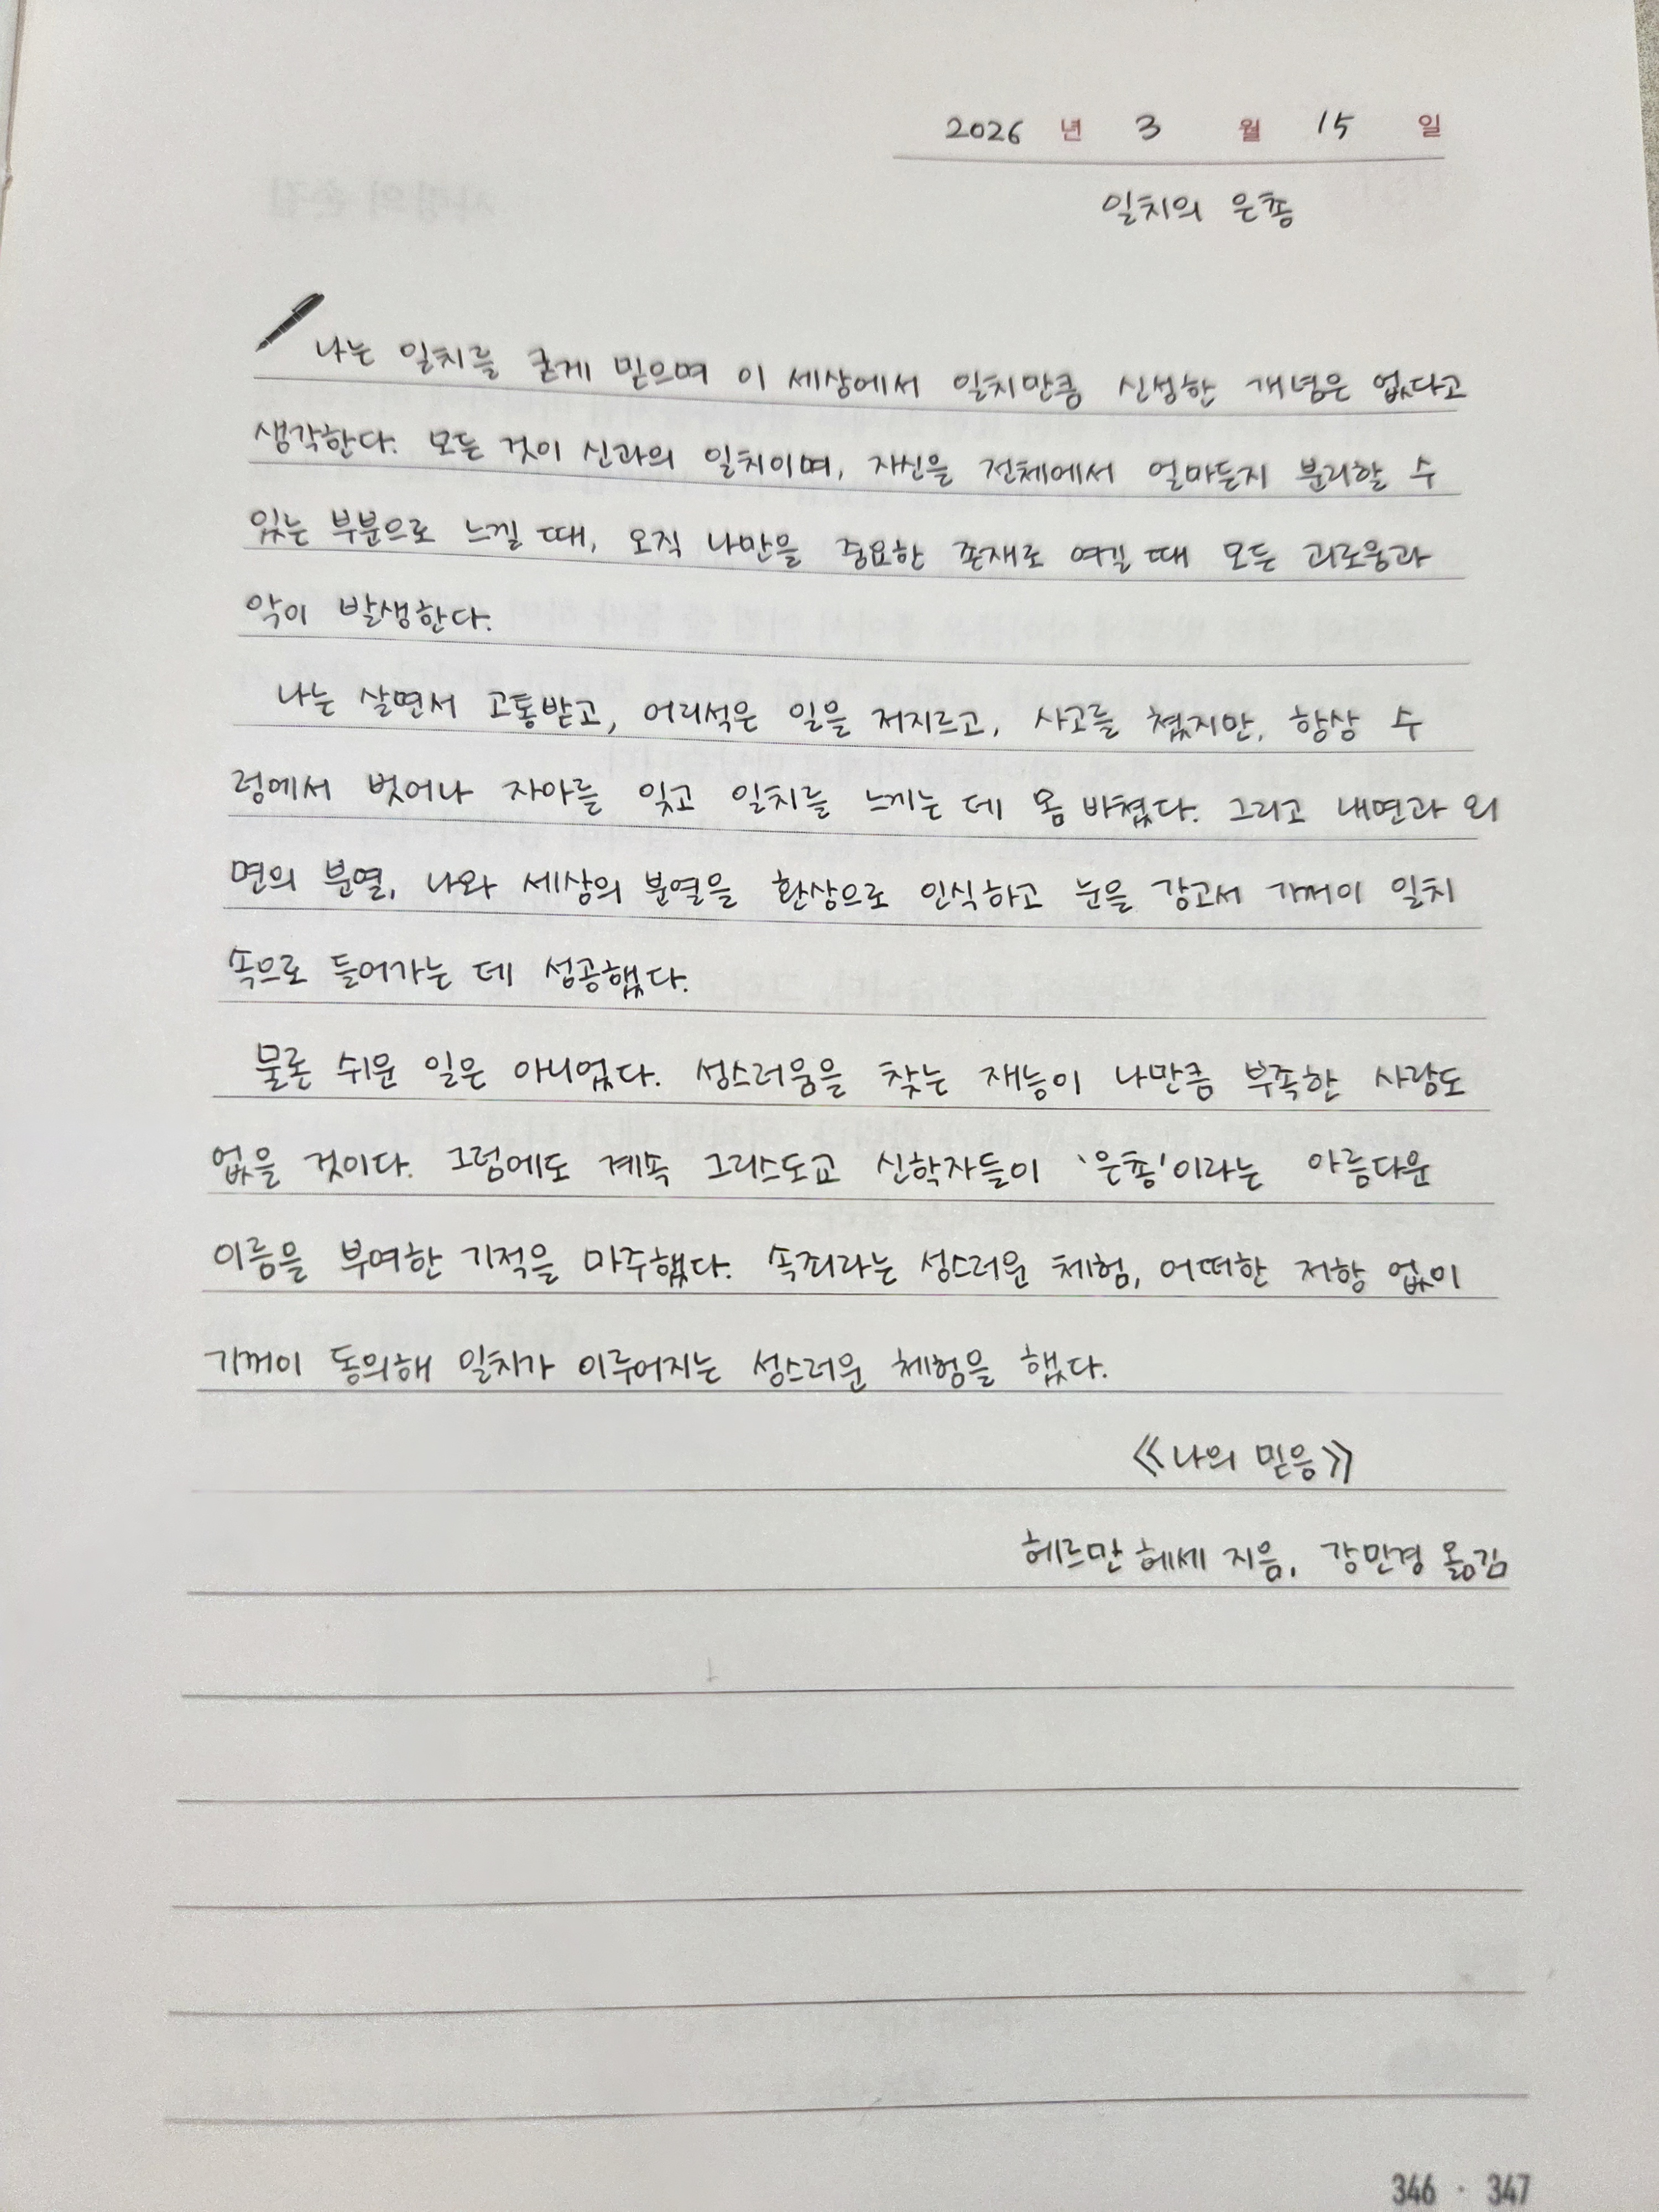 2026 년 3 월 15 일
일치의 은총
나는 일치를 굳게 믿으며 이 세상에서 일치만큼 신성한 개념은 없다고
생각한다. 모든 것이 신과의 일치이며, 자신을 전체에서 얼마든지 분리할 수
있는 부분으로 느낄 때, 오직 나만을 중요한 존재로 여길 때 모든 괴로움과
악이 발생한다.
나는 살면서 고통받고, 어리석은 일을 저지르고, 사고를 쳤지만, 항상 수
렁에서 벗어나 자아를 잊고 일치를 느끼는 데 몸 바쳤다. 그리고 내면과 외
면의 분열, 나와 세상의 분열을 환상으로 인식하고 눈을 감고서 기꺼이 일치
속으로 들어가는 데 성공했다.
물론 쉬운 일은 아니었다. 성스러움을 찾는 재능이 나만큼 부족한 사람도
없을 것이다. 그럼에도 계속 그리스도교 신학자들이 '은총'이라는 아름다운
이름을 부여한 기적을 마주했다. 속죄라는 성스러운 체험, 어떠한 저항 없이
기꺼이 동의해 일치가 이루어지는 성스러운 체험을 했다.
《나의 믿음》
헤르만 헤세 지음, 강민경 옮김
346 · 347